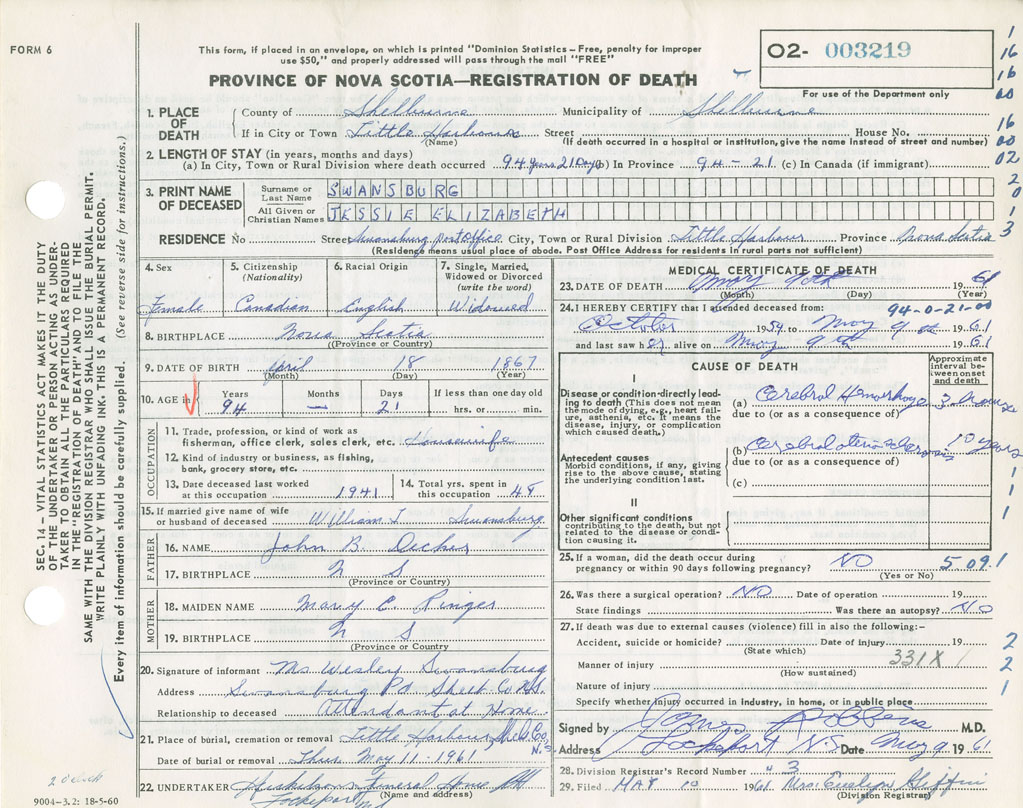 FORM 6
This form, if placed in an envelope, on which is printed "Dominion Statistics – Free, penalty for improper
use $50," and properly addressed will pass through the mail "FREE"
PROVINCE OF NOVA SCOTIA—REGISTRATION OF DEATH
02- 003219
For use of the Department only
SEC. 14 – VITAL STATISTICS ACT MAKES IT THE DUTY
OF THE UNDERTAKER OR PERSON ACTING AS UNDER-
TAKER TO OBTAIN ALL THE PARTICULARS REQUIRED
IN THE "REGISTRATION OF DEATH" AND TO FILE THE
SAME WITH THE DIVISION REGISTRAR WHO SHALL ISSUE THE BURIAL PERMIT.
WRITE PLAINLY WITH UNFADING INK. THIS IS A PERMANENT RECORD.
Every item of information should be carefully supplied. (See reverse side for instructions.)
1. PLACE OF DEATH
County of Shelburne Municipality of Shelburne
If in City or Town Little Harbour Street House No.
(Name) (If death occurred in a hospital or institution, give the name instead of street and number)
2. LENGTH OF STAY (in years, months and days)
(a) In City, Town or Rural Division where death occurred 94 years 21 Days (b) In Province 94-21 (c) In Canada (if immigrant)
3. PRINT NAME OF DECEASED
Surname or Last Name SWANSBURG
All Given or Christian Names JESSIE ELIZABETH
RESIDENCE No Street Swansburg post Office City, Town or Rural Division Little Harbour Province Nova Scotia
(Residence means usual place of abode. Post Office Address for residents in rural parts not sufficient)
4. Sex Female
5. Citizenship (Nationality) Canadian
6. Racial Origin English
7. Single, Married, Widowed or Divorced (write the word) Widowed
8. BIRTHPLACE Nova Scotia
(Province or Country)
9. DATE OF BIRTH April 18 1867
(Month) (Day) (Year)
10. AGE in Years Months Days If less than one day old
94 – 21 hrs. or min.
OCCUPATION
11. Trade, profession, or kind of work as
fisherman, office clerk, sales clerk, etc. Housewife
12. Kind of industry or business, as fishing,
bank, grocery store, etc.
13. Date deceased last worked at this occupation 1941
14. Total yrs. spent in this occupation 48
15. If married give name of wife
or husband of deceased William T Swansburg
FATHER
16. NAME John B. Decker
17. BIRTHPLACE N S
(Province or Country)
MOTHER
18. MAIDEN NAME Mary E. Ringer
19. BIRTHPLACE N S
(Province or Country)
20. Signature of informant Mrs Wesley Swansburg
Address Swansburg P.O Shelb. Co N.S.
Relationship to deceased Attendant at Home
21. Place of burial, cremation or removal Little Harbour, Shel. Co, N.S
Date of burial or removal Thus May 11 - 1961
22. UNDERTAKER Funeral Home
(Name and address)
Lockeport N.S
9004–3.2: 18-5-60
MEDICAL CERTIFICATE OF DEATH
23. DATE OF DEATH May 9th 1961
(Month) (Day) (Year)
24. I HEREBY CERTIFY that I attended deceased from: 94-0-21-00
October 1959 to May 9th 1961
and last saw her alive on May 9th 1961
CAUSE OF DEATH
Approximate interval between onset and death
I
Disease or condition directly leading to death (This does not mean the mode of dying, e.g., heart failure, asthenia, etc. It means the disease, injury, or complication which caused death.)
(a) Cerebral Hemorrhage 3 hours
due to (or as a consequence of)
Antecedent causes
Morbid conditions, if any, giving rise to the above cause, stating the underlying condition last.
(b) Cerebral 10 years
due to (or as a consequence of)
(c)
II
Other significant conditions
contributing to the death, but not related to the disease or condition causing it.
25. If a woman, did the death occur during
pregnancy or within 90 days following pregnancy? NO 5091
(Yes or No)
26. Was there a surgical operation? NO Date of operation 19
State findings Was there an autopsy? NO
27. If death was due to external causes (violence) fill in also the following:–
Accident, suicide or homicide? Date of injury 19
(State which)
Manner of injury 331X
(How sustained)
Nature of injury
Specify whether injury occurred in industry, in home, or in public place
Signed by James Robbins M.D.
Address Lockeport N.S Date May 9 1961
28. Division Registrar's Record Number #3
29. Filed MAY 10 1961 Mrs. Evelyn
(Division Registrar)